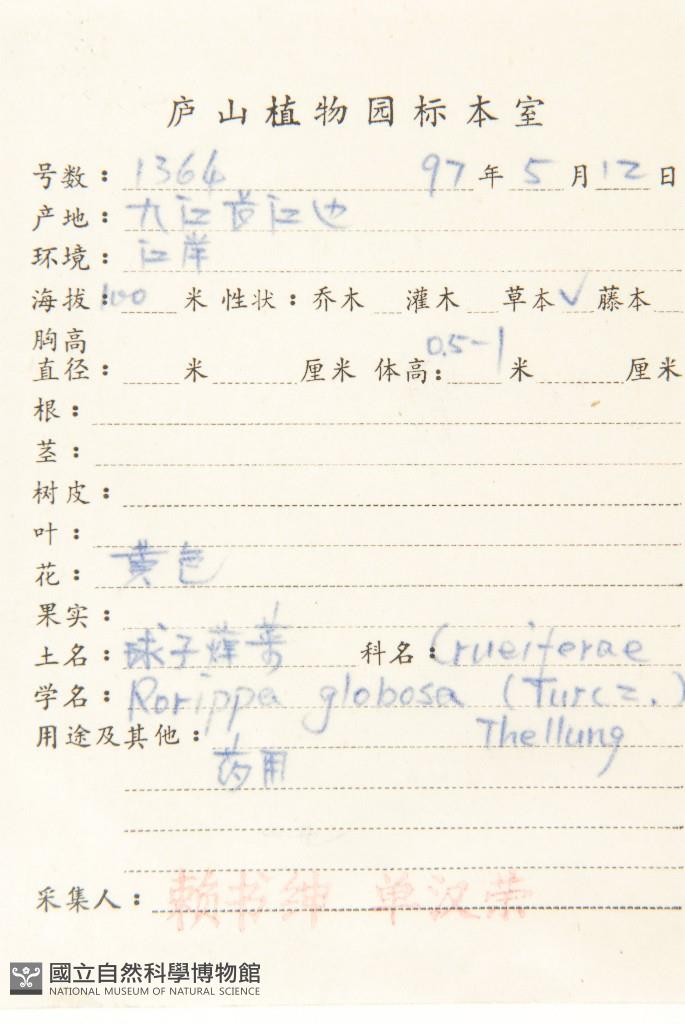 庐山植物园标本室
号数：1364 97年5月12日
产地：九江 江边
环境：江岸
海拔：100米 性状：乔木 灌木 草本✓ 藤本
胸高
直径： 米 厘米 体高：0.5-1米 厘米
根：
茎：
树皮：
叶：
花：黄色
果实：
土名：球子蔊菜 科名：Crueiferae
学名：Rorippa globosa (Turcz.)
Thellung
用途及其他：
药用
采集人：赖书绅 单汉荣
國立自然科學博物館
NATIONAL MUSEUM OF NATURAL SCIENCE